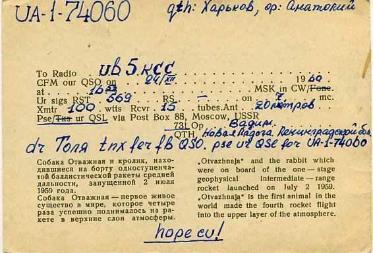 UA-1-74060 qth: Харьков, op: Анатолий
To Radio UB5KCC
CFM our QSO on 24/XII 1960
at MSK in CW/Fone.
Ur sigs RST 569 RS - on 7 mc.
Xmtr 100 wtts Rcvr 15 tubes. Ant. 20 метров
Pse/Tnx ur QSL via Post Box 88, Moscow, USSR
731 Op. Вадим.
QTH, Новая Ладога Ленинградской обл.
dr Толя tnx fer fb QSO. pse ur QSL for UA-1-74060
Собака Отважная и кролик, нахо-
дившиеся на борту одноступенча-
той баллистической ракеты средней
дальности, запущенной 2 июля
1959 года.
Собака Отважная — первое живое
существо в мире, которое четыре
раза успешно поднималось на ра-
кете в верхние слои атмосферы.
„Otvazhnaja" and the rabbit which
were on board of the one — stage
geophysical intermediate — range
rocket launched on July 2 1959.
„Otvazhnaja" is the first animal in the
world made the fourth rocket flight
into the upper layers of the atmosphere.
hope cu!